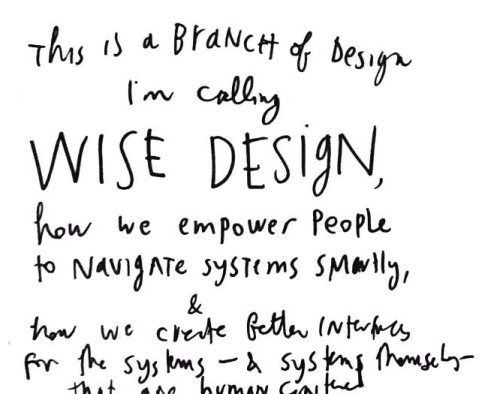 This is a BraNCH of Design
I'm calling
WISE DESIGN,
how we empower People
to NavigATe systems SMartly,
&
how we create better Interfaces
for the systems – & systems themselv–
that are human